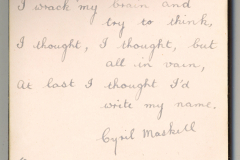 I wrack my brain and
try to think,
I thought, I thought, but
all in vain,
At last I thought I'd
write my name.
Cyril Maskell